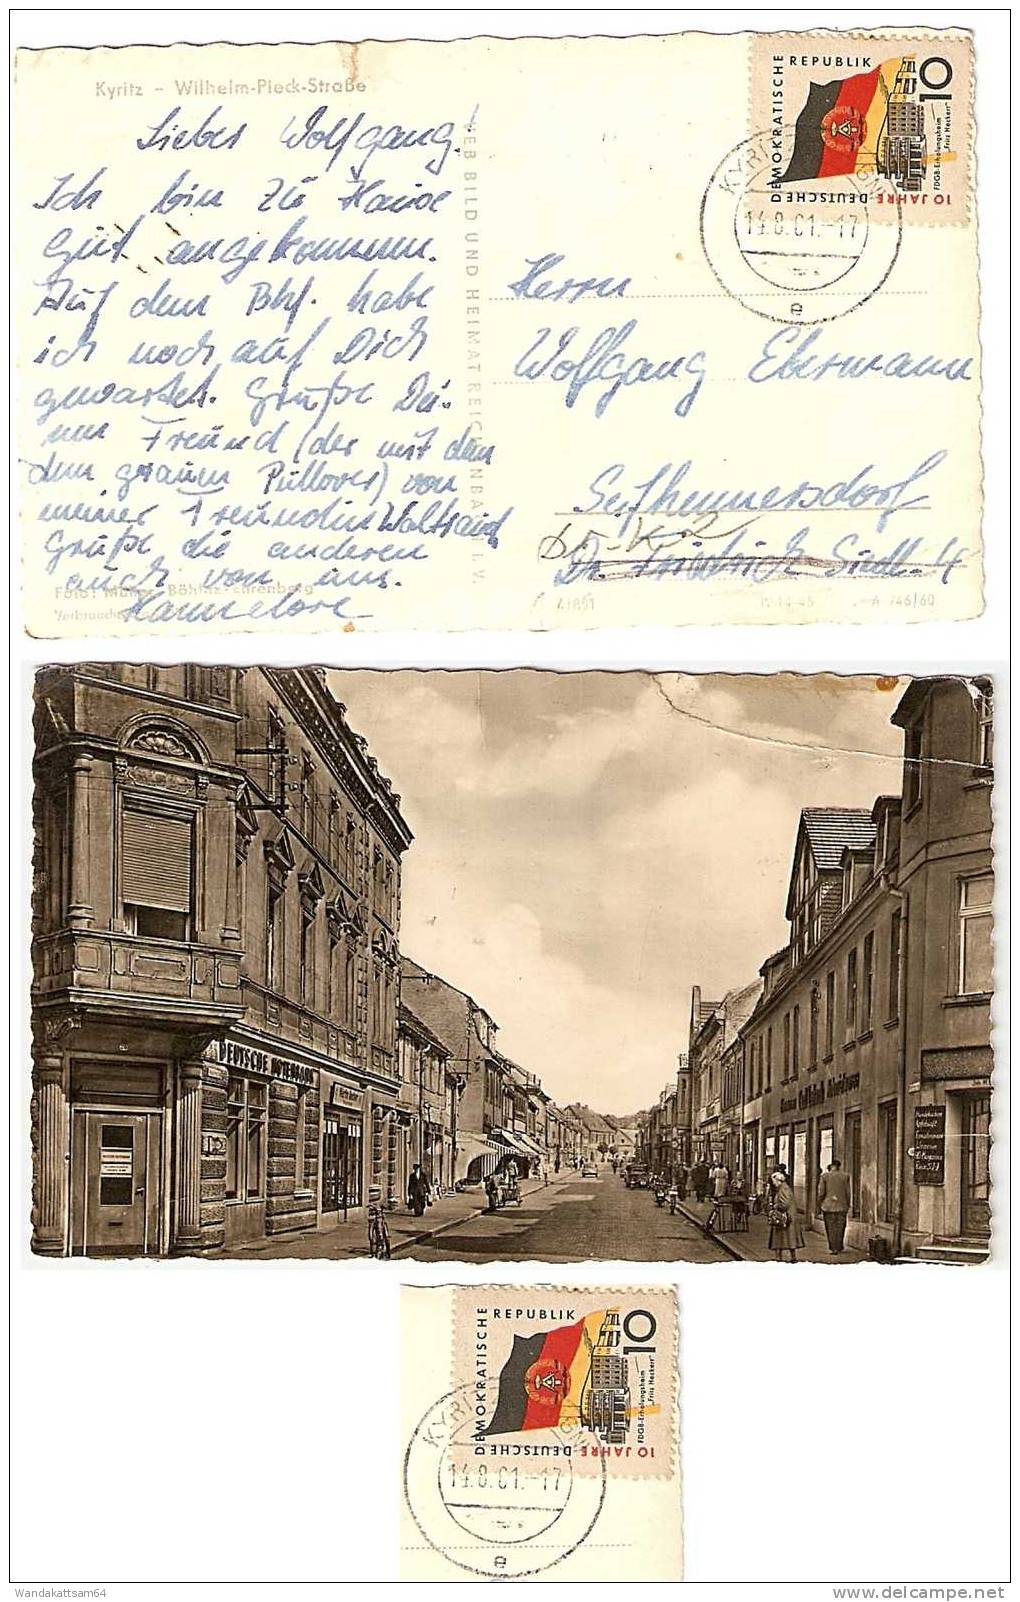 Kyritz – Wilhelm-Pieck-Straße
Lieber Wolfgang!
Ich bin zu Hause
gut angekommen.
Auf dem Bhf. habe
ich noch auf Dich
gewartet. Grüße Dei-
nen Freund (der mit dem
dem grauen Pullover) von
meiner Freundin Waltraud
Grüße die anderen
auch von uns.
Hannelore
Foto: Müller, Böhlitz-Ehrenberg
VEB BILD UND HEIMAT REICHENBACH I. V.
DEUTSCHE DEMOKRATISCHE REPUBLIK
10 JAHRE
10
FDGB-Erholungsheim
"Fritz Heckert"
KYRITZ
14.8.61.-17
e
Herrn
Wolfgang Ebermann
Seifhennersdorf
Dr. Friedrich Siedl. 4
A 746/60
DEUTSCHE NOTENBANK
DEUTSCHE DEMOKRATISCHE REPUBLIK
10 JAHRE
10
FDGB-Erholungsheim
"Fritz Heckert"
KYRITZ
14.8.61.-17
e
Wandakattsam64
delcampe.net